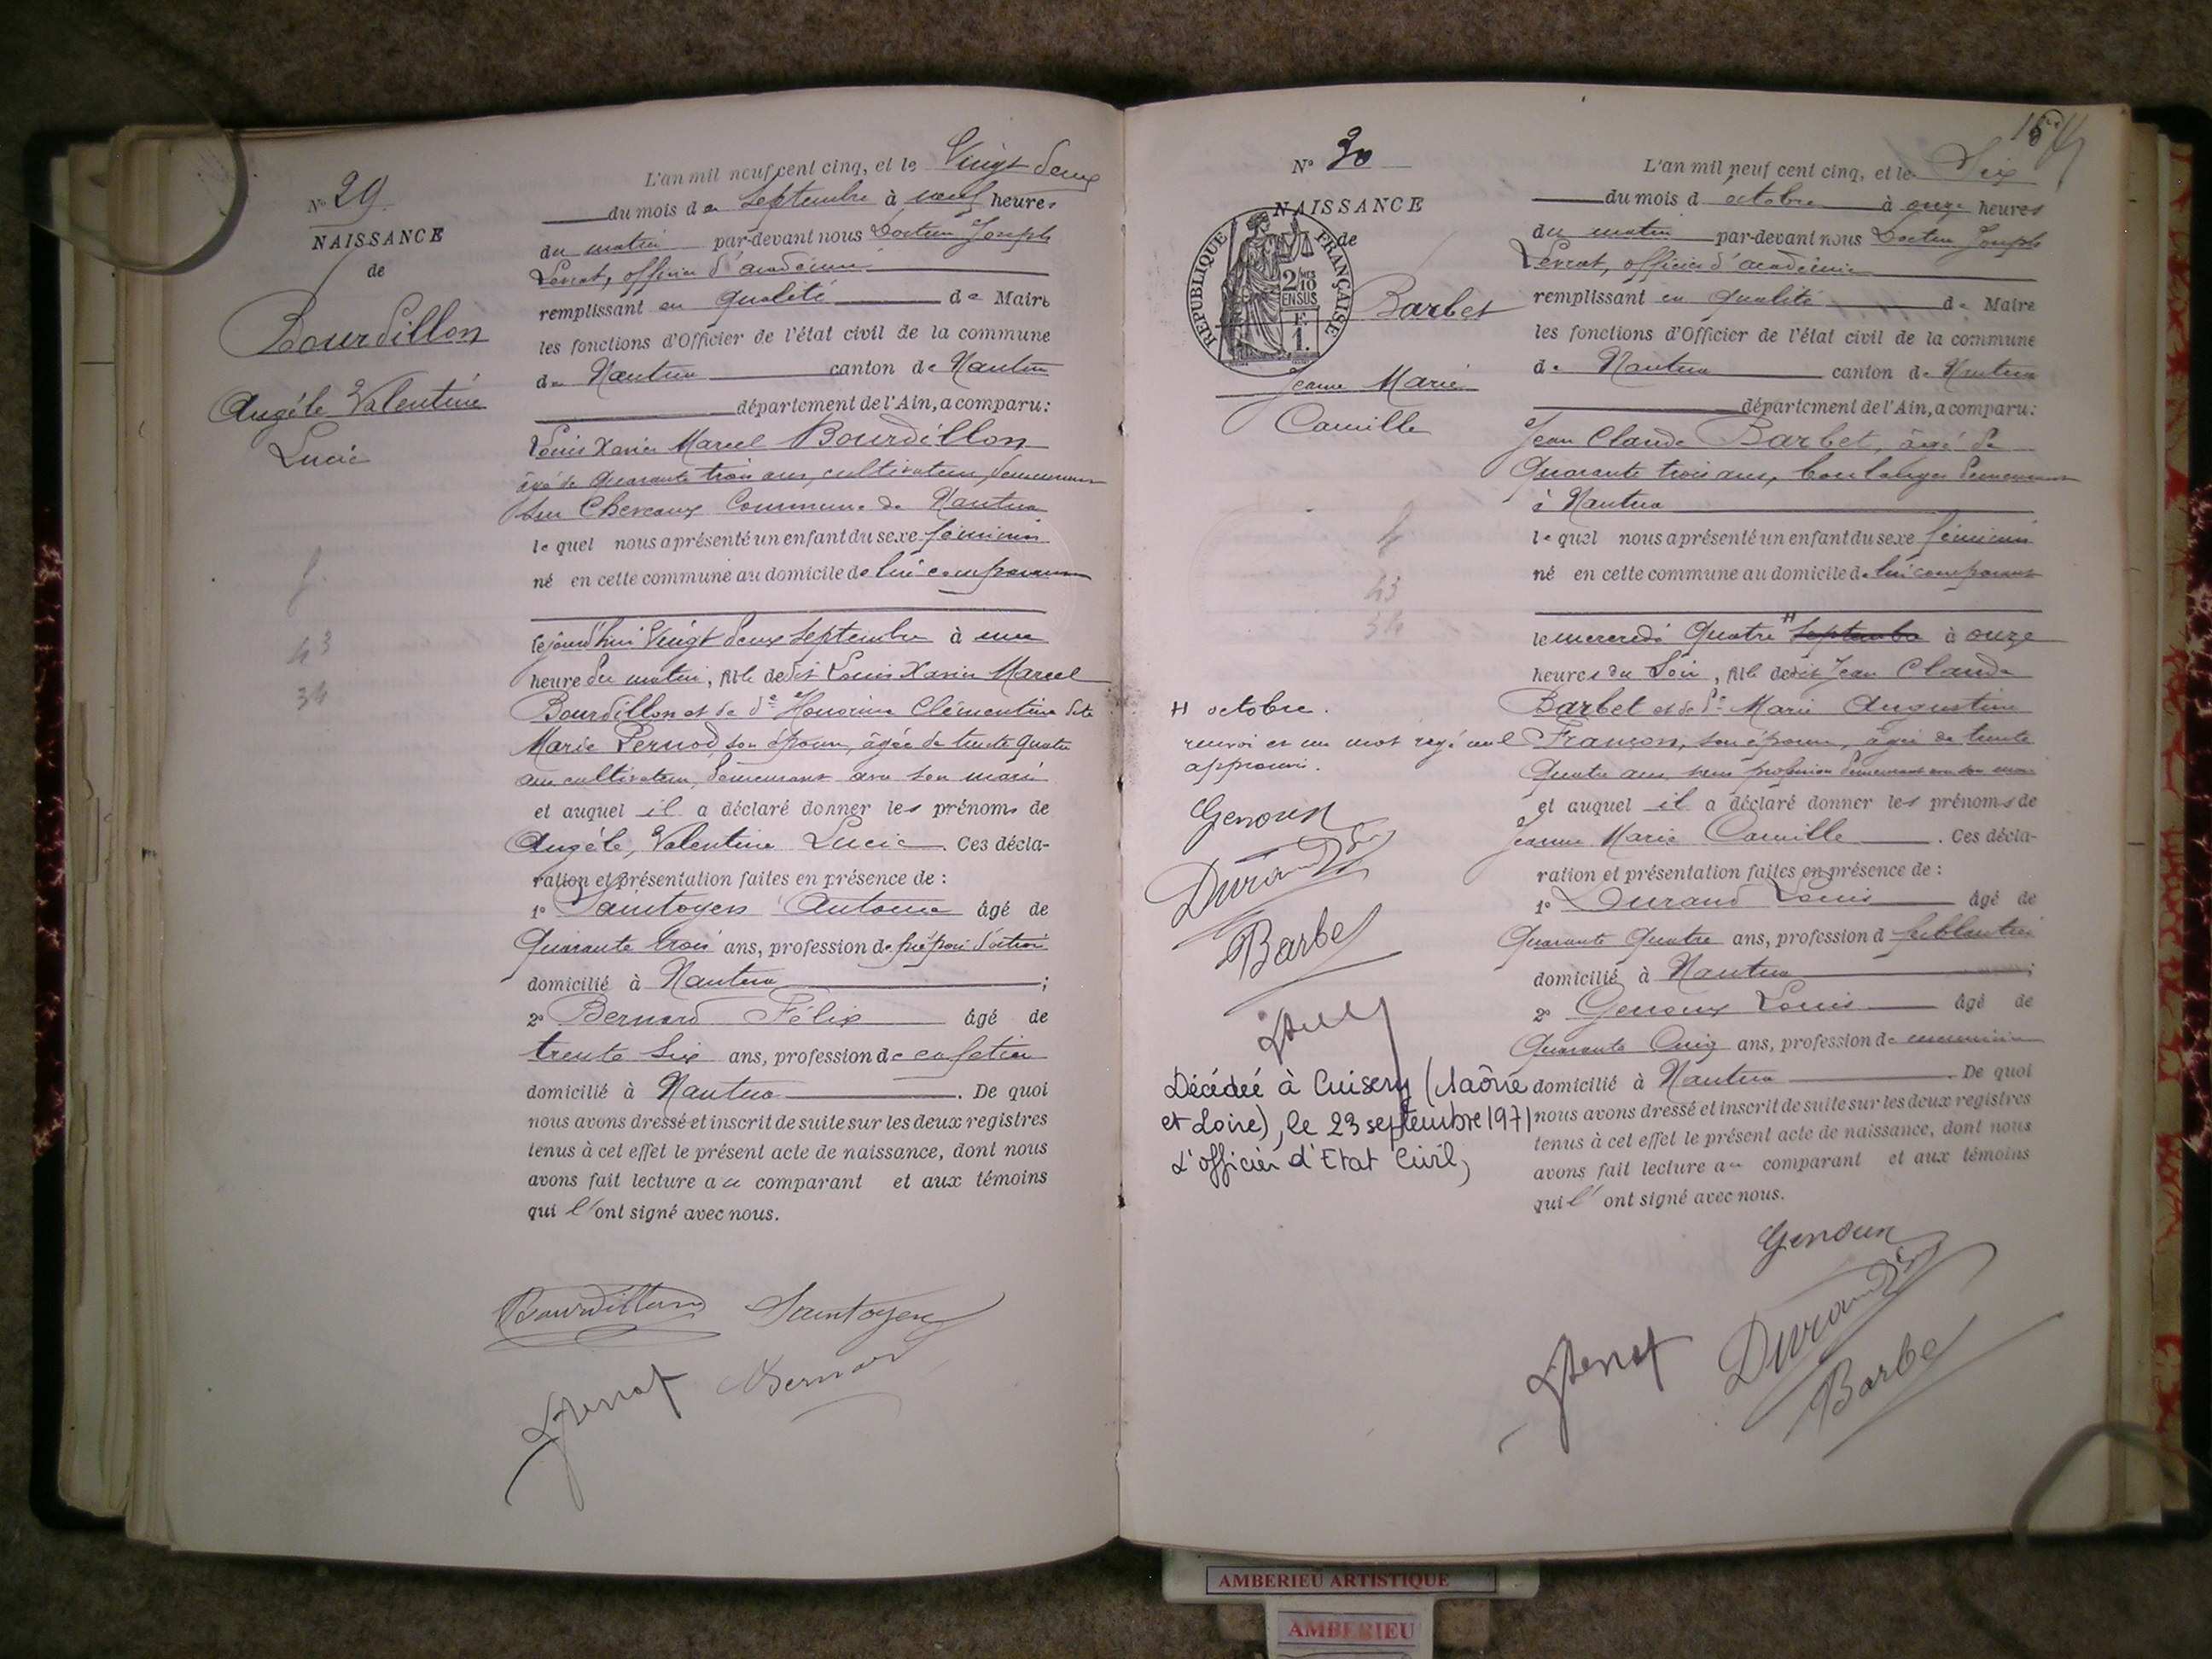 N° 29
NAISSANCE
de
Bourdillon
Angéle Valentine
Lucie
f
43
34
L'an mil neuf cent cinq, et le Vingt deux
du mois de Septembre à neuf heures
du matin par-devant nous Docteur Joseph
Levrat, officier d'académie
remplissant en qualité de Maire
les fonctions d'Officier de l'état civil de la commune
de Nantua canton de Nantua
département de l'Ain, a comparu:
Louis Xavier Marcel Bourdillon
âgé de Quarante trois ans, cultivateur, demeurant
sur Chereaux Commune de Nantua
lequel nous a présenté un enfant du sexe féminin
né en cette commune au domicile de lui comparant
lejourd'hui Vingt deux Septembre à une
heure du matin, fille dedit Louis Xavier Marcel
Bourdillon et de De Honorine Clémentine dite
Marie Pernod, son épouse, âgée de trente quatre
ans cultivateur, demeurant avec son mari
et auquel il a déclaré donner les prénoms de
Angéle, Valentine Lucie. Ces décla-
ration et présentation faites en présence de :
1° Saintoyen Antoine âgé de
Quarante trois ans, profession de préposé d'octroi
domicilié à Nantua ;
2° Bernard Félix âgé de
trente six ans, profession de cafetier
domicilié à Nantua. De quoi
nous avons dressé et inscrit de suite sur les deux registres
tenus à cet effet le présent acte de naissance, dont nous
avons fait lecture au comparant et aux témoins
qui l'ont signé avec nous.
Bourdillon Saintoyen
Levrat Bernard
N° 30
NAISSANCE
de
REPUBLIQUE FRANÇAISE
2/10
EN SUS
F.
1.
Barbet
Jeanne Marie
Camille
f
43
34
H octobre.
renvoi et un mot rayé nul
approuvé.
Genoux
Durand
Barbet
Décédée à Cuisery (Saône
et Loire), le 23 septembre 1971
L'officier d'Etat Civil,
L'an mil neuf cent cinq, et le Six
du mois d octobre à onze heures
du matin par-devant nous Docteur Joseph
Levrat, officier d'académie
remplissant en qualité de Maire
les fonctions d'Officier de l'état civil de la commune
de Nantua canton de Nantua
département de l'Ain, a comparu:
Jean Claude Barbet, âgé de
Quarante trois ans, boulanger demeurant
à Nantua
lequel nous a présenté un enfant du sexe féminin
né en cette commune au domicile de lui comparant
le mercredi Quatre H Septembre à onze
heures du Soir, fille dedit Jean Claude
Barbet et de De Marie Augustine
Françon, son épouse, âgée de trente
Quatre ans, sans profession demeurant avec son mari
et auquel il a déclaré donner les prénoms de
Jeanne Marie Camille. Ces décla-
ration et présentation faites en présence de :
1° Durand Louis âgé de
Quarante Quatre ans, profession d ferblantier
domicilié à Nantua ;
2° Genoux Louis âgé de
Quarante Cinq ans, profession de menuisier
domicilié à Nantua. De quoi
nous avons dressé et inscrit de suite sur les deux registres
tenus à cet effet le présent acte de naissance, dont nous
avons fait lecture au comparant et aux témoins
qui l'ont signé avec nous.
Genoux
Levrat Durand
Barbet
AMBERIEU ARTISTIQUE
AMBERIEU